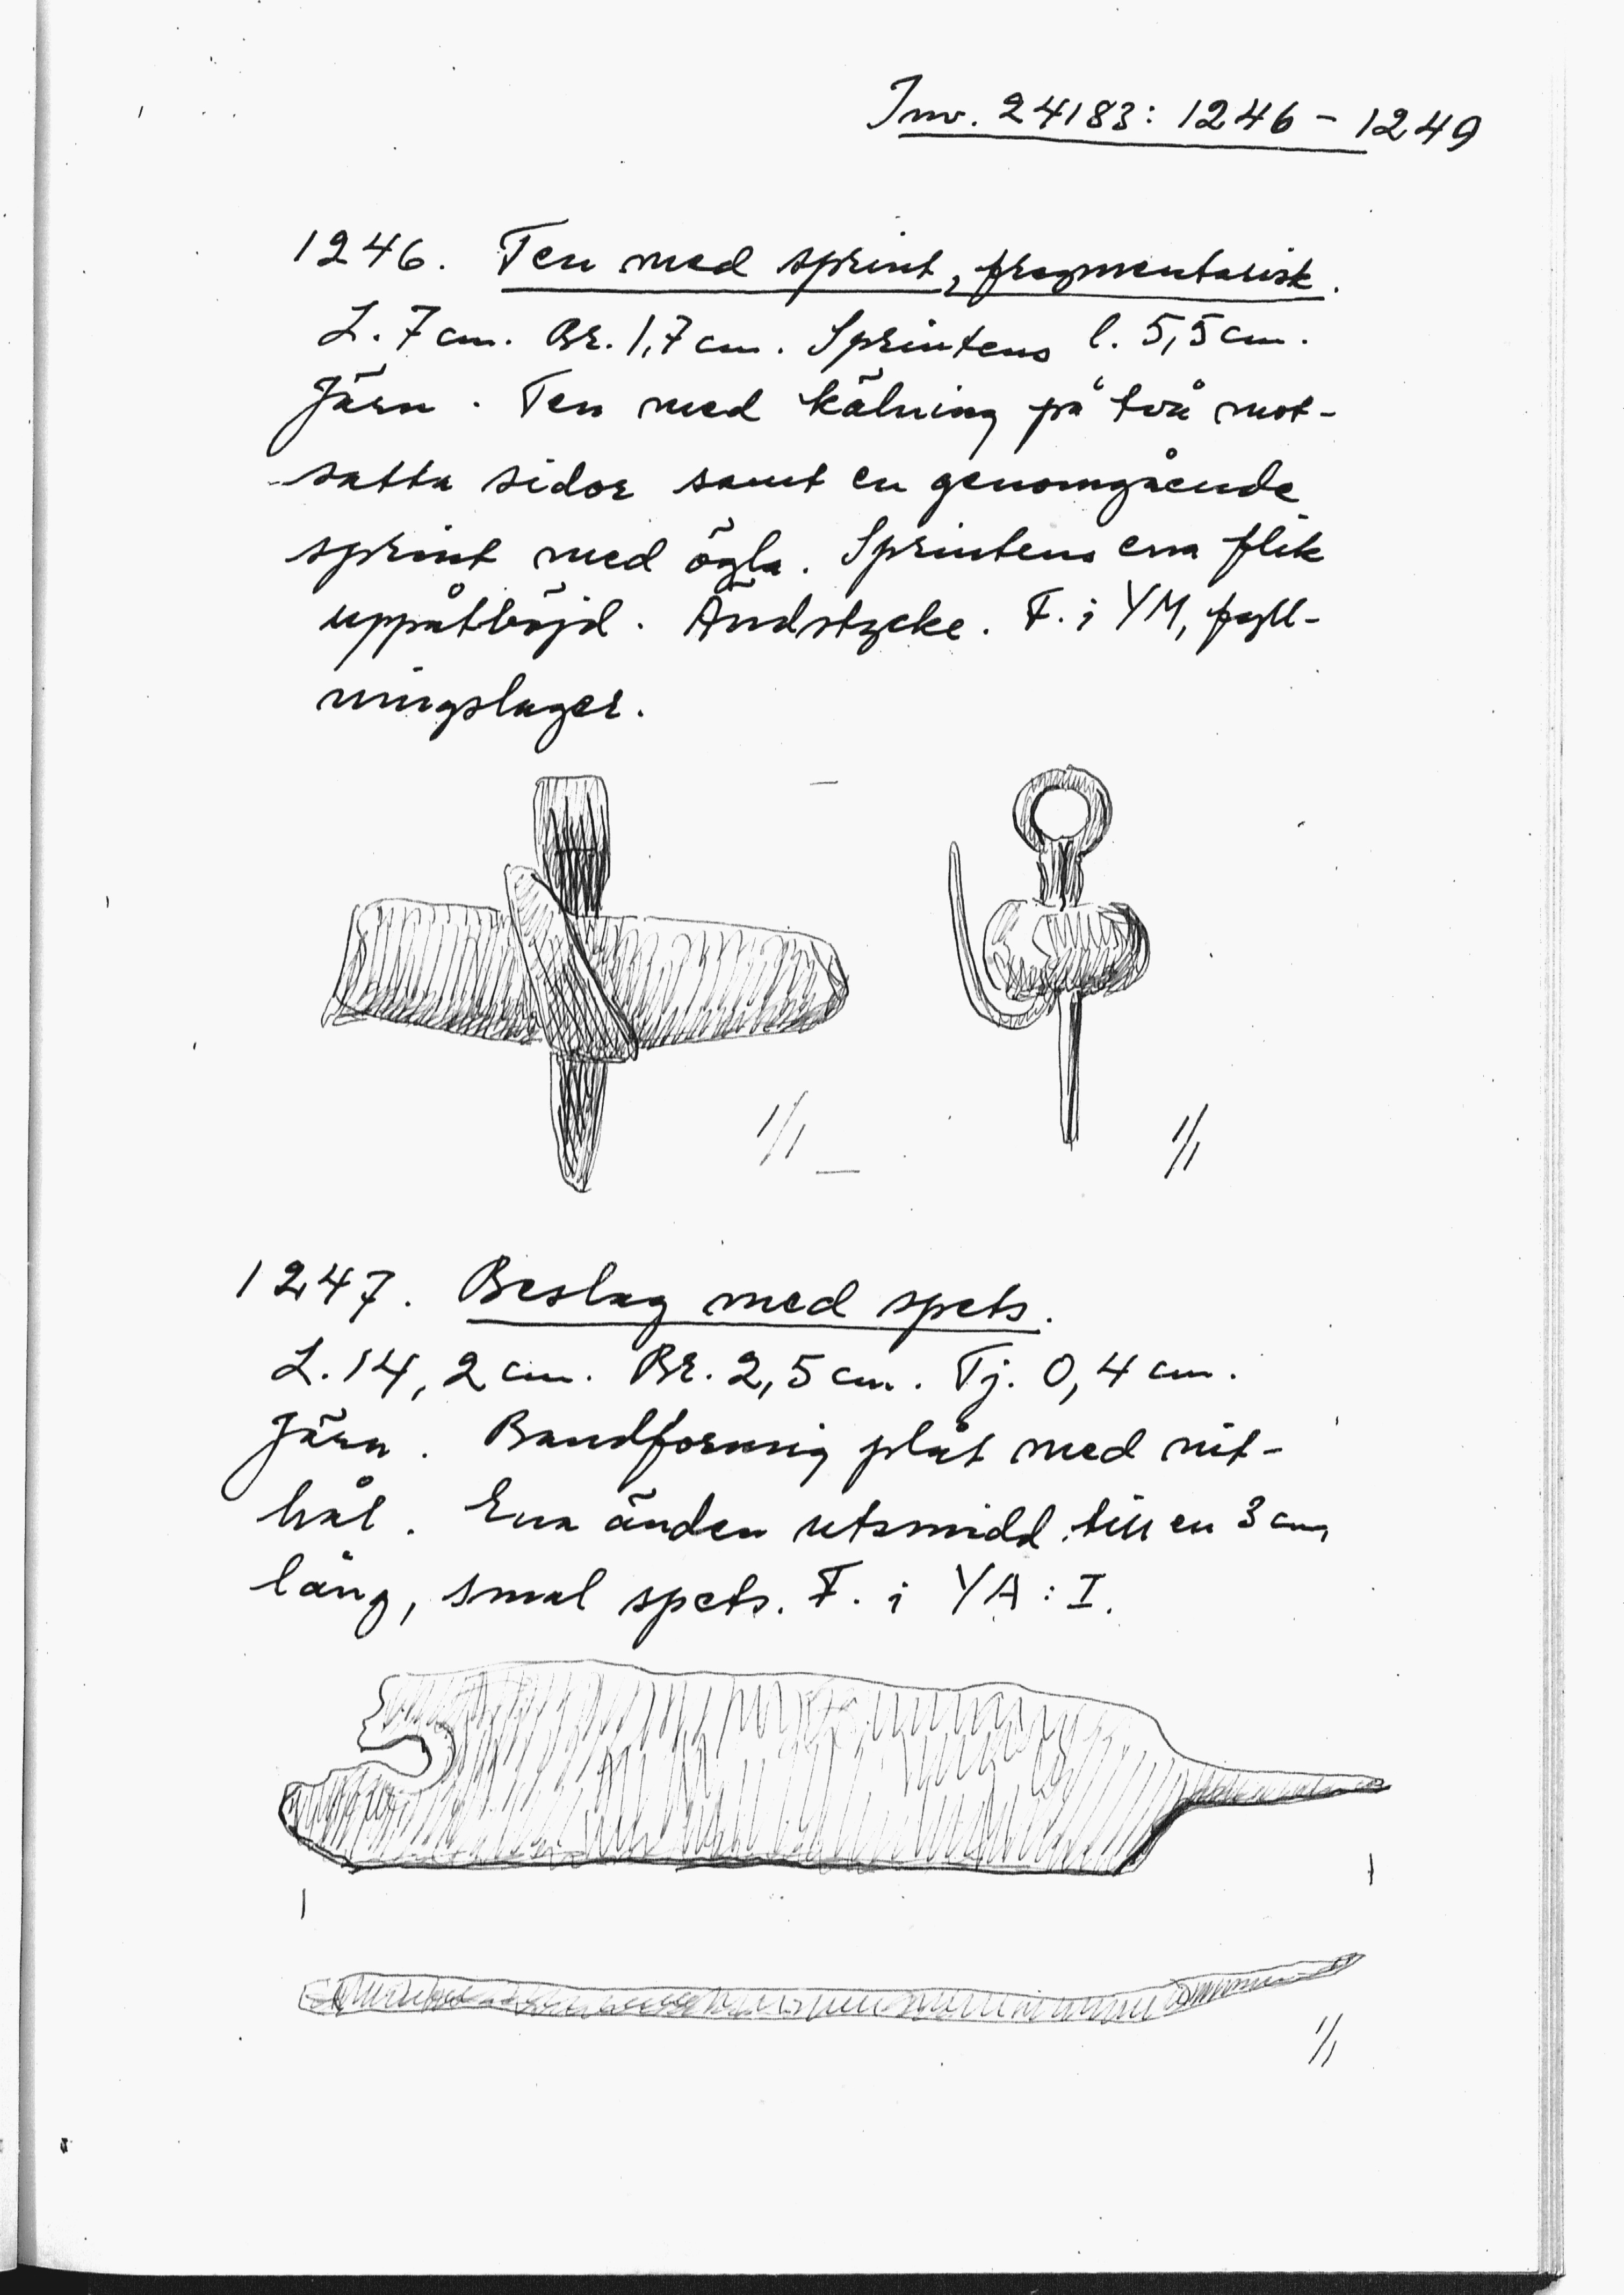 Inv. 24183: 1246 - 1249
1246. Ten med sprint, fragmentarisk.
L. 7 cm. Br. 1,7 cm. Sprintens l. 5,5 cm.
Järn. Ten med kälning på två mot-
satta sidor samt en genomgående
sprint med ögla. Sprintens ena flik
uppåtböjd. Ändstycke. F. i YM, fyll-
ningslager.
1/1
1/1
1247. Beslag med spets.
L. 14,2 cm. Br. 2,5 cm. Tj. 0,4 cm.
Järn. Bandformig plåt med nit-
hål. Ena änden utsmidd till en 3 cm
lång, smal spets. F. i YA: I.
1/1